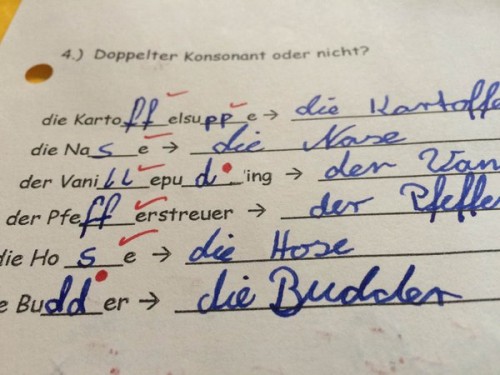 4.) Doppelter Konsonant oder nicht?
die Kartoffelsuppe → die Kartoffe
die Nase → die Nase
der Vanillepuding → der Van
der Pfefferstreuer → der Pfeffe
die Hose → die Hose
e Budder → die Budder